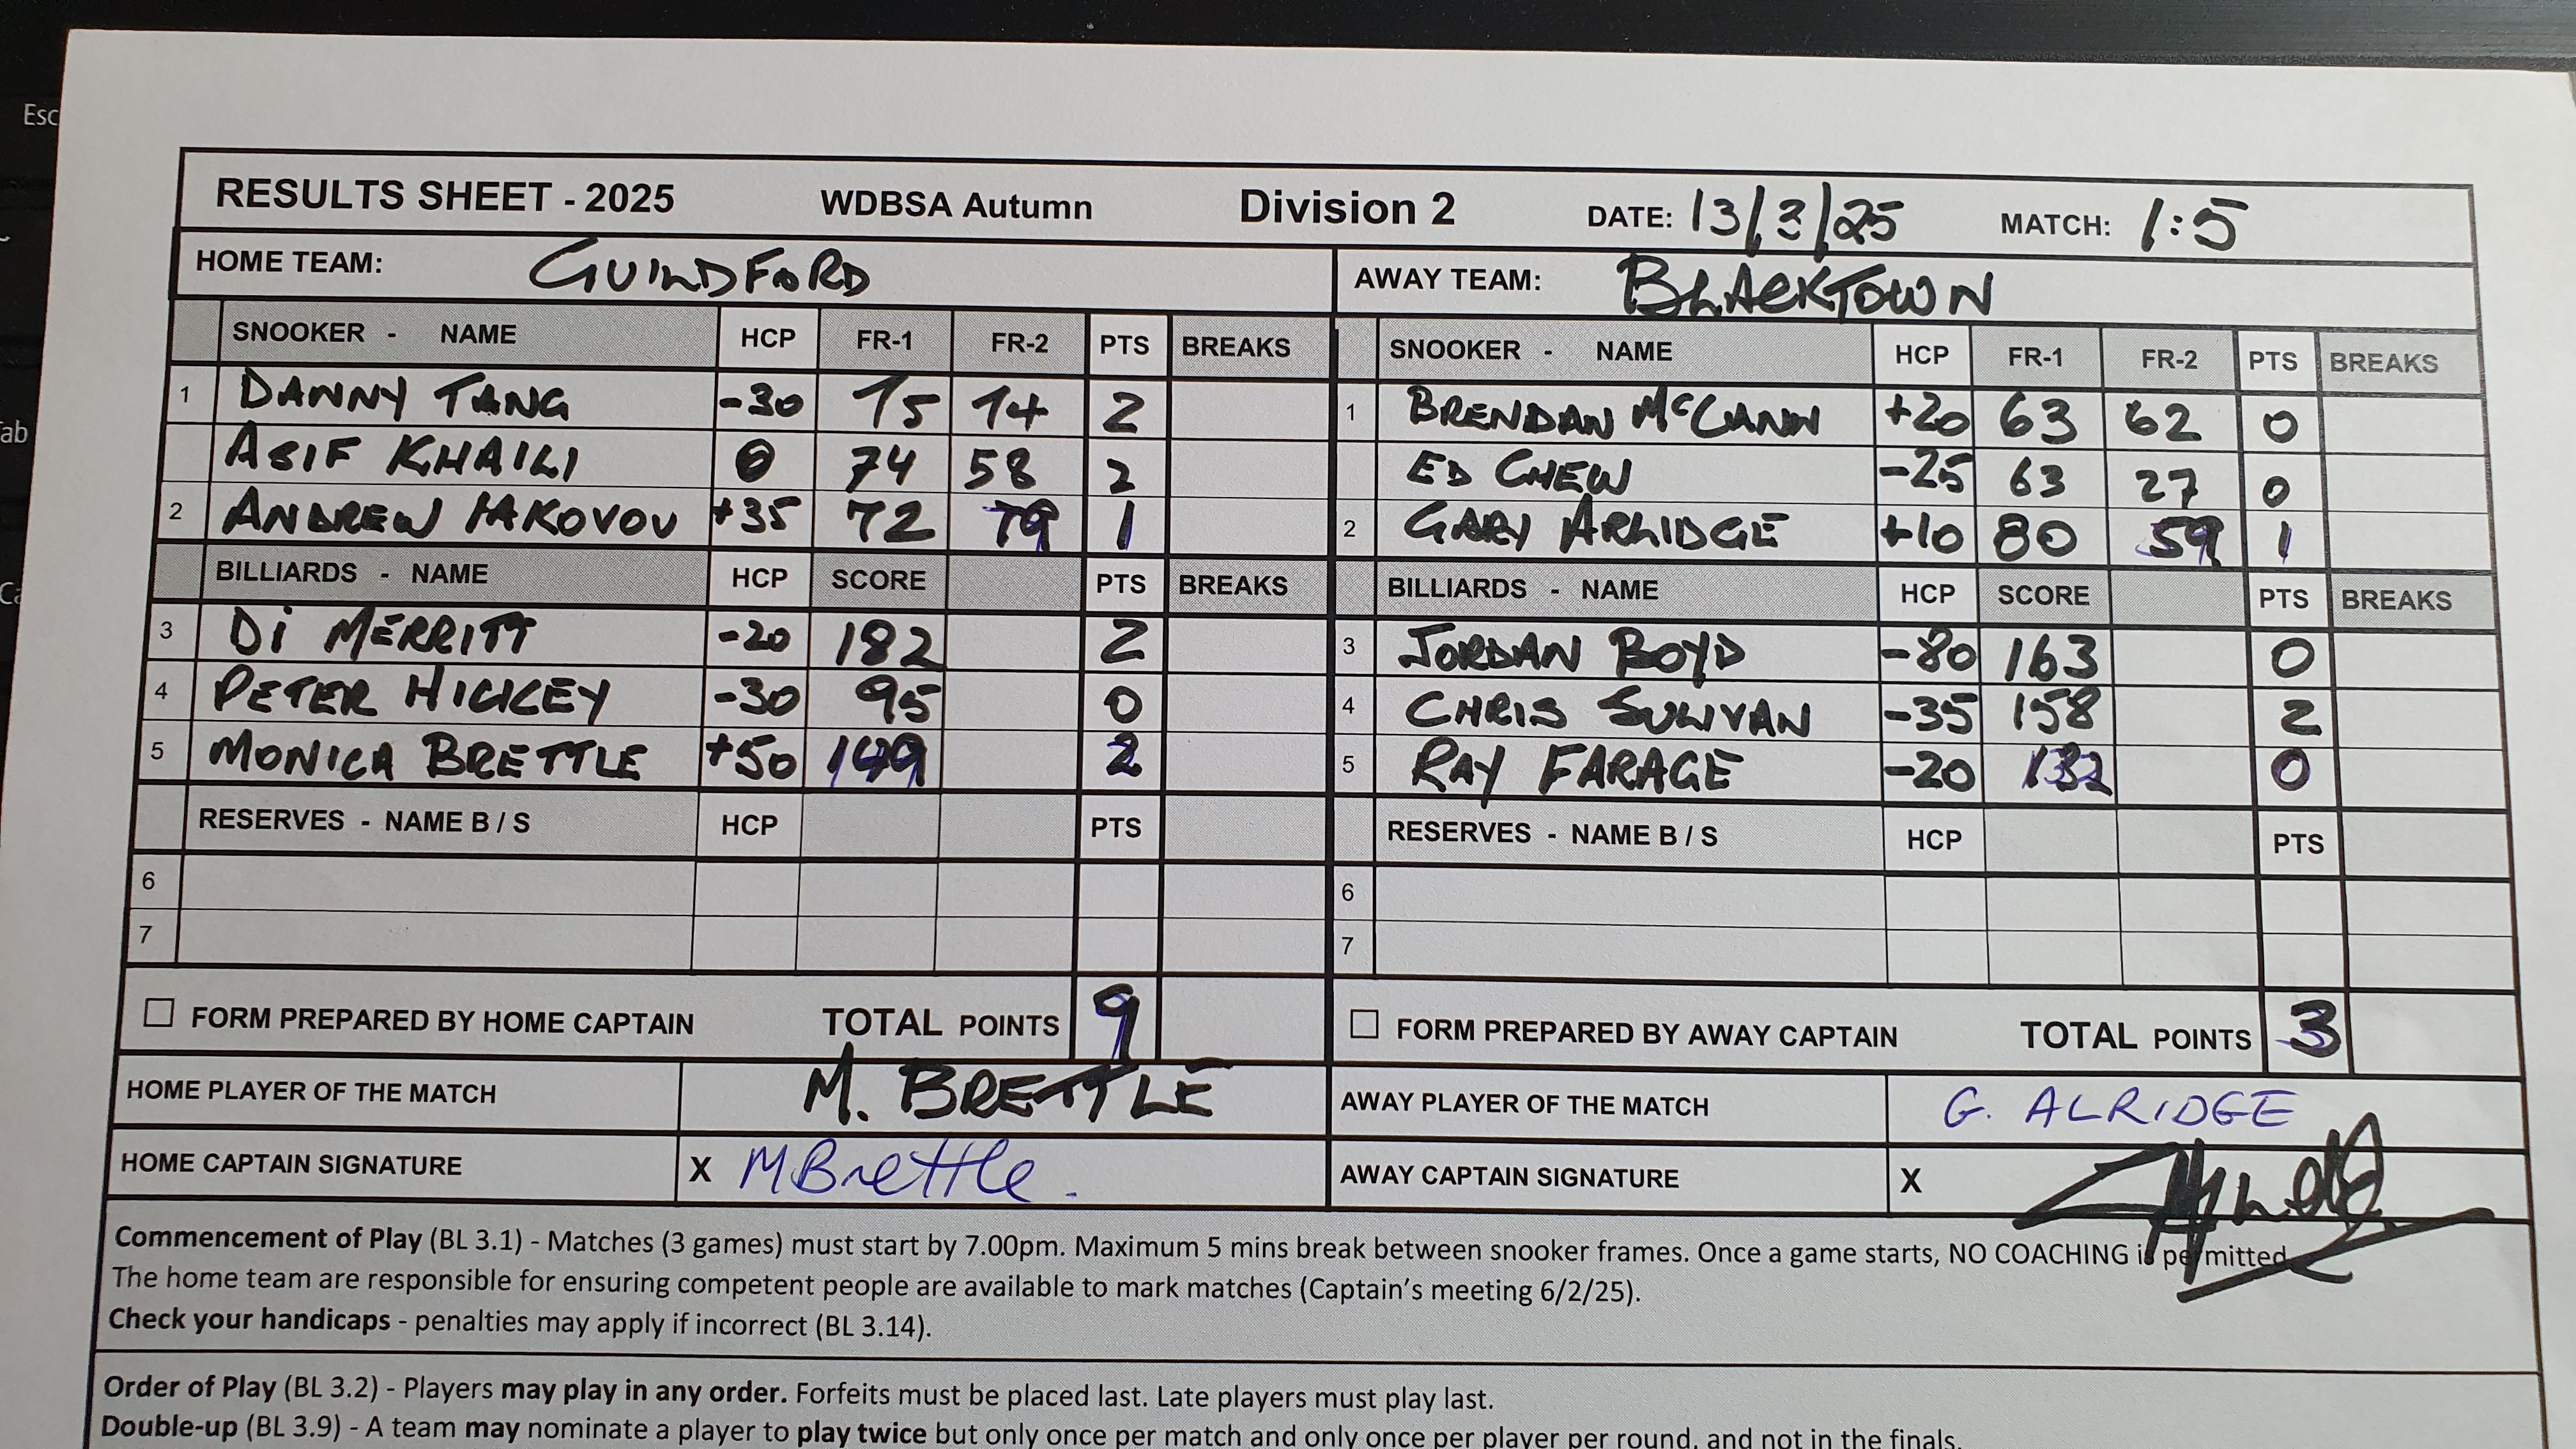 Esc
RESULTS SHEET - 2025 WDBSA Autumn Division 2 DATE: 13/3/25 MATCH: 1:5
HOME TEAM: GUILDFORD AWAY TEAM: BLACKTOWN
SNOOKER - NAME HCP FR-1 FR-2 PTS BREAKS SNOOKER - NAME HCP FR-1 FR-2 PTS BREAKS
1 DANNY TANG -30 75 74 2 1 BRENDAN McCANN +20 63 62 0
ASIF KHAILI 0 74 58 2 ED CHEW -25 63 27 0
2 ANDREW IAKOVOU +35 72 79 1 2 GARY ARLIDGE +10 80 59 1
BILLIARDS - NAME HCP SCORE PTS BREAKS BILLIARDS - NAME HCP SCORE PTS BREAKS
3 Di MERRITT -20 182 2 3 JORDAN BOYD -80 163 0
4 PETER HICKEY -30 95 0 4 CHRIS SULIVAN -35 158 2
5 MONICA BRETTLE +50 149 2 5 RAY FARAGE -20 132 0
RESERVES - NAME B / S HCP PTS RESERVES - NAME B / S HCP PTS
6 6
7 7
FORM PREPARED BY HOME CAPTAIN TOTAL POINTS 9 FORM PREPARED BY AWAY CAPTAIN TOTAL POINTS 3
HOME PLAYER OF THE MATCH M. BRETTLE AWAY PLAYER OF THE MATCH G. ALRIDGE
HOME CAPTAIN SIGNATURE X MBrettle. AWAY CAPTAIN SIGNATURE X
Commencement of Play (BL 3.1) - Matches (3 games) must start by 7.00pm. Maximum 5 mins break between snooker frames. Once a game starts, NO COACHING is permitted
The home team are responsible for ensuring competent people are available to mark matches (Captain's meeting 6/2/25).
Check your handicaps - penalties may apply if incorrect (BL 3.14).
Order of Play (BL 3.2) - Players may play in any order. Forfeits must be placed last. Late players must play last.
Double-up (BL 3.9) - A team may nominate a player to play twice but only once per match and only once per player per round, and not in the finals.